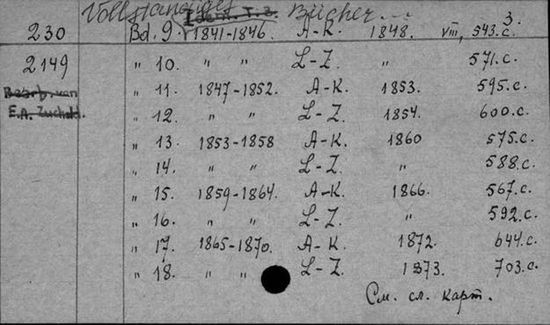 Vollständiges Bücher...
3.
230 Bd. 9. 1841-1846. A-K. 1848. VIII, 543.с.
2149 " 10. " " L-Z. " 571.с.
" 11. 1847-1852. A-K. 1853. 595.с.
Bearb. von
" 12. " " L-Z. 1854. 600.с.
E.A. Zuchold.
" 13. 1853-1858 A-K. 1860 575.с.
" 14. " " L-Z. " 588.с.
" 15. 1859-1864. A-K. 1866. 567.с.
" 16. " " L-Z. " 592.с.
" 17. 1865-1870. A-K. 1872. 644.с.
" 18. " " L-Z. 1873. 703.с.
См. сл. карт.